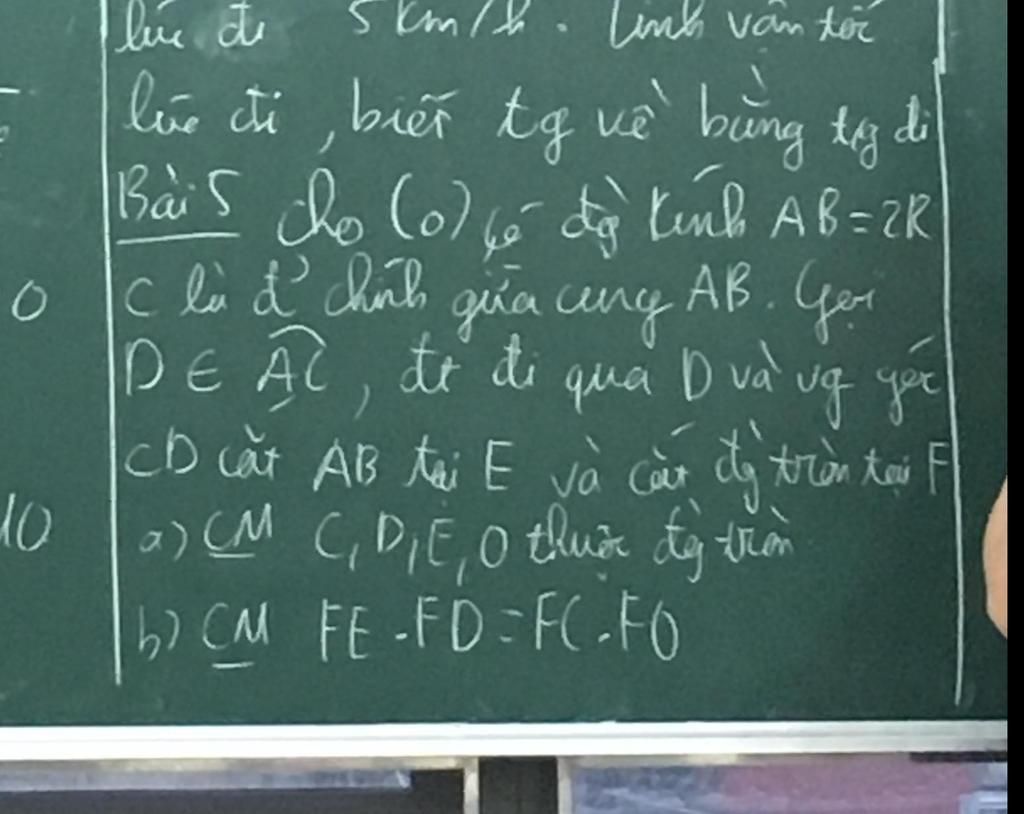 lúc đi 5 km/h. Tính vận tốc
lúc đi, biết tg về bằng tg đi
Bài 5 Cho (O) có đg kính AB = 2R
0 C là đ' chính giữa cung AB. Gọi
D ∈ AC, đt đi qua D và vg góc
CD cắt AB tại E và cắt đg tròn tại F
10 a) CM C, D, E, O thuộc đg tròn
b) CM FE . FD = FC . FO